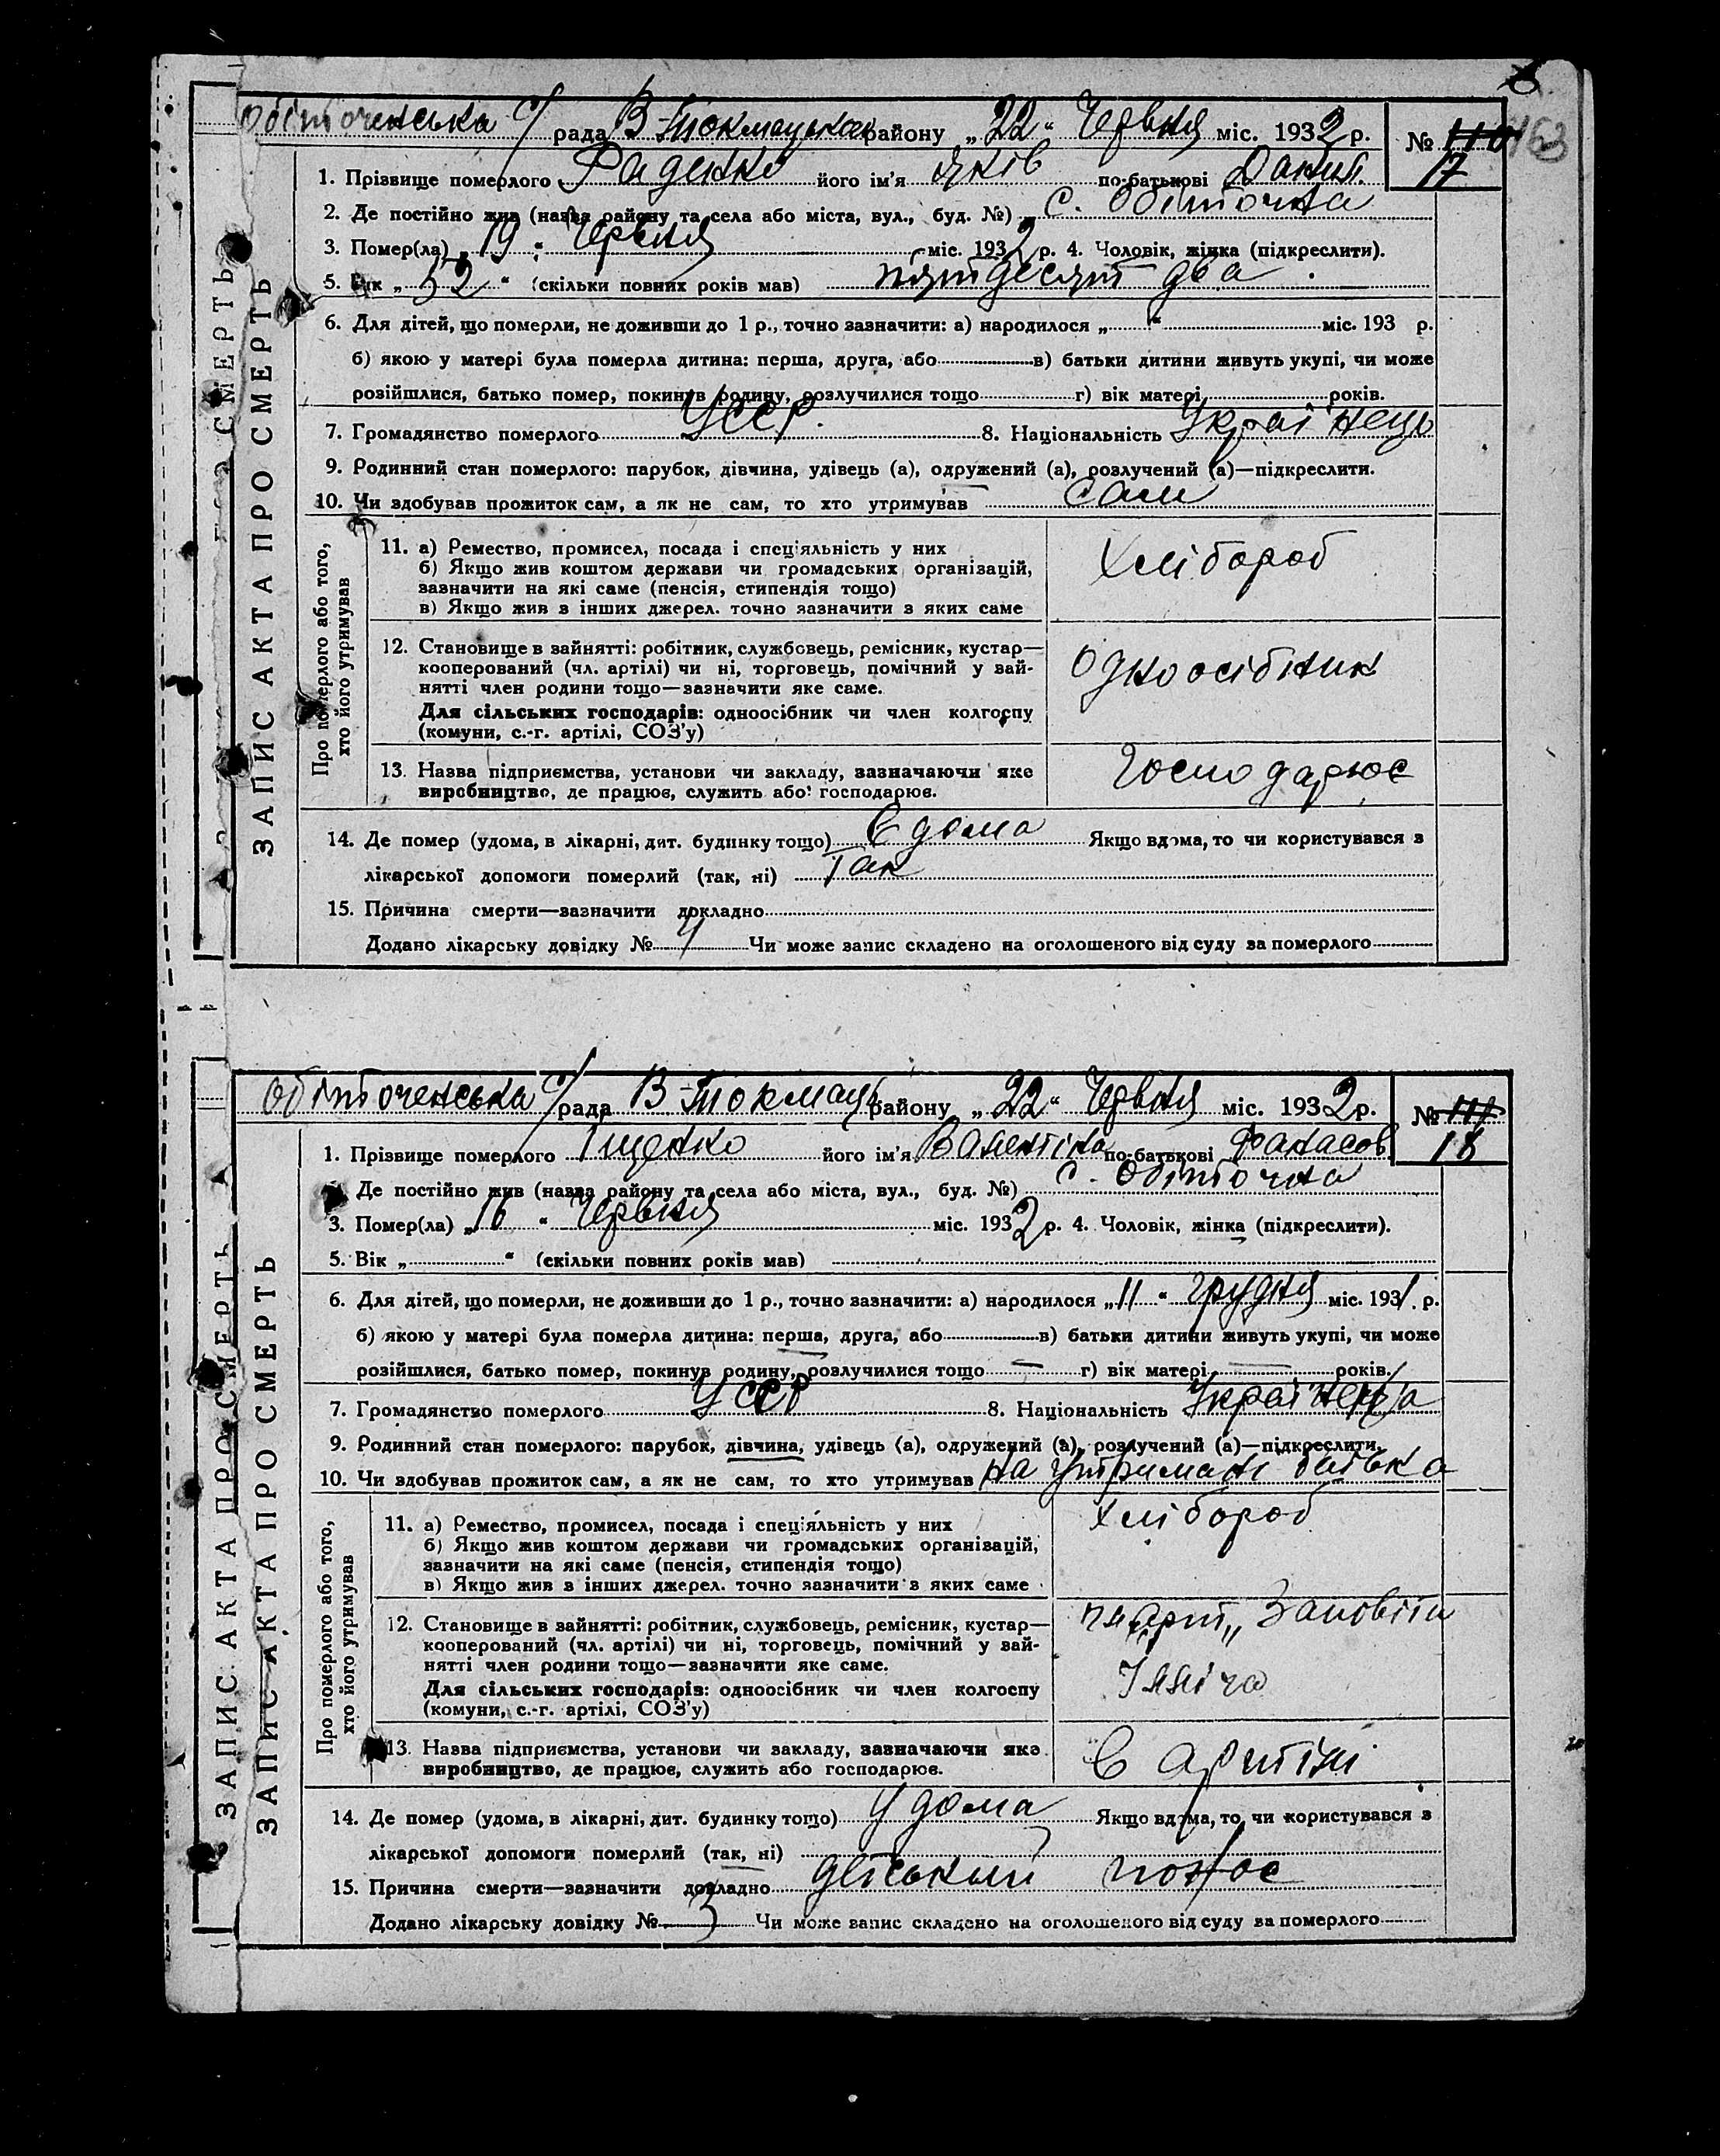 Обіточенська с/рада В-Токмацька району „22“ Червня міс. 1932 р. № 110 163
17
1. Прізвище померлого Раденко його ім’я Яків по-батькові Данил.
2. Де постійно жив (назва району та села або міста, вул., буд. №) с. Обіточна
3. Помер(ла) „19“ Червня міс. 1932 р. 4. Чоловік, жінка (підкреслити).
5. Вік „52“ (скільки повних років мав) пятдесят два
6. Для дітей, що померли, не доживши до 1 р., точно зазначити: а) народилося „ “ міс. 193 р.
б) якою у матері була померла дитина: перша, друга, або в) батьки дитини живуть укупі, чи може
розійшлися, батько помер, покинув родину, розлучилися тощо г) вік матері років.
7. Громадянство померлого УССР. 8. Національність Українець
9. Родинний стан померлого: парубок, дівчина, удівець (а), одружений (а), розлучений (а)—підкреслити.
10. Чи здобував прожиток сам, а як не сам, то хто утримував сам
ЗАПИС АКТА ПРО СМЕРТЬ
Про померлого або того,
хто його утримував
11. а) Ремество, промисел, посада і спеціяльність у них
б) Якщо жив коштом держави чи громадських організацій,
зазначити на які саме (пенсія, стипендія тощо)
в) Якщо жив з інших джерел. точно зазначити з яких саме
Хлібороб
12. Становище в зайнятті: робітник, службовець, ремісник, кустар—
кооперований (чл. артілі) чи ні, торговець, помічний у зай-
нятті член родини тощо—зазначити яке саме.
Для сільських господарів: одноосібник чи член колгоспу
(комуни, с.-г. артілі, СОЗ’у)
Одноосібник
13. Назва підприємства, установи чи закладу, зазначаючи яке
виробництво, де працює, служить або господарює.
Господарює
14. Де помер (удома, в лікарні, дит. будинку тощо) вдома Якщо вдома, то чи користувався з
лікарської допомоги померлий (так, ні) Так
15. Причина смерти—зазначити докладно
Додано лікарську довідку № 4 Чи може запис складено на оголошеного від суду за померлого
Обіточенська с/рада В-Токмацьк району „22“ Червня міс. 1932 р. № 111
18
1. Прізвище померлого Іщенко його ім’я Валентіна по-батькові Фанасов
2. Де постійно жив (назва району та села або міста, вул., буд. №) с. Обіточна
3. Помер(ла) „16“ Червня міс. 1932 р. 4. Чоловік, жінка (підкреслити).
5. Вік „ “ (скільки повних років мав)
6. Для дітей, що померли, не доживши до 1 р., точно зазначити: а) народилося „11“ грудня міс. 1931 р.
б) якою у матері була померла дитина: перша, друга, або в) батьки дитини живуть укупі, чи може
розійшлися, батько помер, покинув родину, розлучилися тощо — г) вік матері — років.
7. Громадянство померлого УССР 8. Національність Українець/а
9. Родинний стан померлого: парубок, дівчина, удівець (а), одружений (а), розлучений (а)—підкреслити.
10. Чи здобував прожиток сам, а як не сам, то хто утримував на утримані батька
ЗАПИС АКТА ПРО СМЕРТЬ
ЗАПИС АКТА ПРО СМЕРТЬ
Про померлого або того,
хто його утримував
11. а) Ремество, промисел, посада і спеціяльність у них
б) Якщо жив коштом держави чи громадських організацій,
зазначити на які саме (пенсія, стипендія тощо)
в) Якщо жив з інших джерел. точно зазначити з яких саме
Хлібороб
12. Становище в зайнятті: робітник, службовець, ремісник, кустар—
кооперований (чл. артілі) чи ні, торговець, помічний у зай-
нятті член родини тощо—зазначити яке саме.
Для сільських господарів: одноосібник чи член колгоспу
(комуни, с.-г. артілі, СОЗ’у)
арт „Заповіти
Ілліча
13. Назва підприємства, установи чи закладу, зазначаючи яке
виробництво, де працює, служить або господарює.
в артілі
14. Де помер (удома, в лікарні, дит. будинку тощо) удома Якщо вдома, то чи користувався з
лікарської допомоги померлий (так, ні)
15. Причина смерти—зазначити докладно детський понос
Додано лікарську довідку № 3 Чи може запис складено на оголошеного від суду за померлого